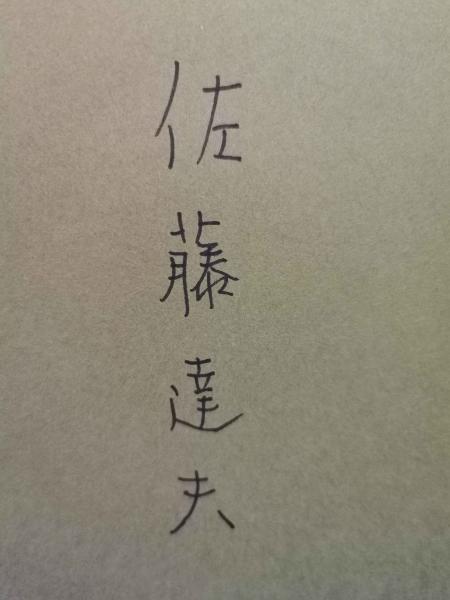 佐藤達夫